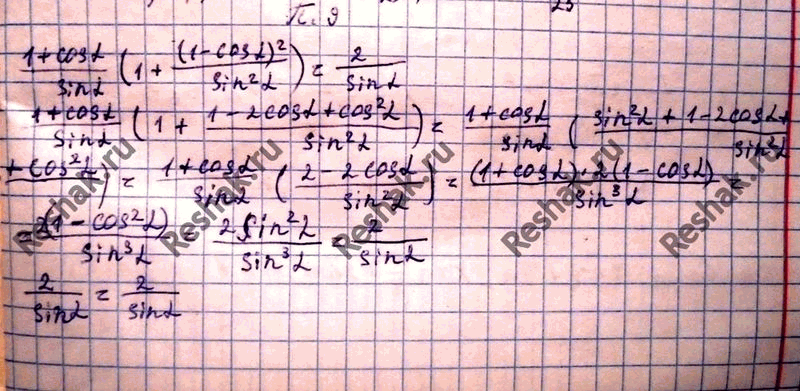 П. 9
25
(1+cosα)/sinα (1 + (1-cosα)²/sin²α) = 2/sinα
(1+cosα)/sinα (1 + (1-2cosα+cos²α)/sin²α) = (1+cosα)/sinα ( (sin²α + 1-2cosα+
+cos²α)/sin²α ) = (1+cosα)/sinα ((2-2cosα)/sin²α) = ((1+cosα)·2(1-cosα))/sin³α =
= 2(1-cos²α)/sin³α = 2sin²α/sin³α = 2/sinα
2/sinα = 2/sinα
Reshak.ru
Reshak.ru
Reshak.ru
Reshak.ru
Reshak.ru
Reshak.ru